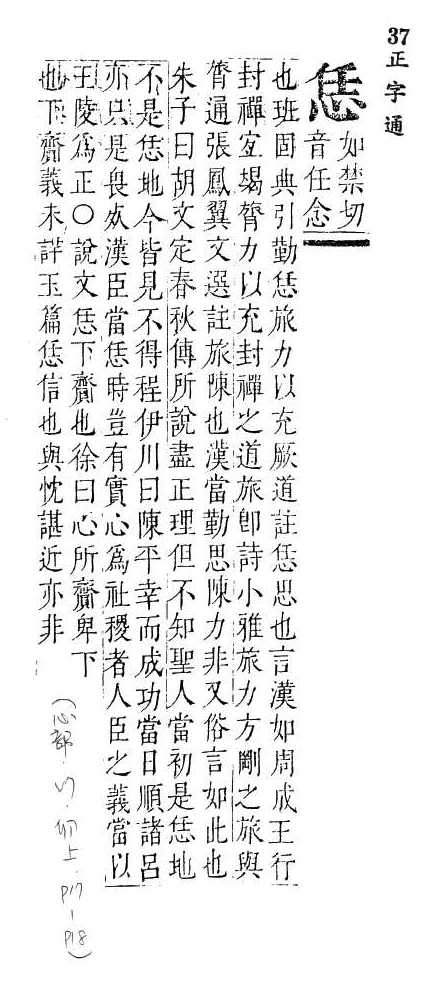 37正字通
恁
如禁切
音任念
也班固典引勤恁旅力以充厥道註恁思也言漢如周成王行
封禪宜竭膂力以充封禪之道旅卽詩小雅旅力方剛之旅與
膂通張鳳翼文選註旅陳也漢當勤思陳力非又俗言如此也
朱子曰胡文定春秋傳所說盡正理但不知聖人當初是恁地
不是恁地今皆見不得程伊川曰陳平幸而成功當日順諸呂
亦只是畏死漢臣當恁時豈有實心爲社稷者人臣之義當以
王陵爲正〇說文恁下齎也徐曰心所齎卑下
也下齎義未詳玉篇恁信也與忱諶近亦非
(心部.6.卯上.P17-P18)